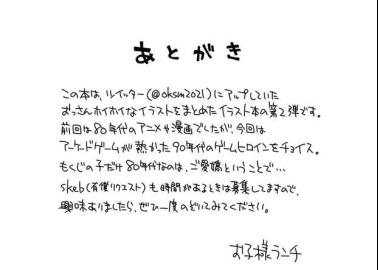 あとがき
この本は、ツイッター(@oksm2021)にアップしていた
おっさんホイホイなイラストをまとめたイラスト本の第2弾です。
前回は80年代のアニメや漫画でしたが、今回は
アーケードゲームが熱かった90年代のゲームヒロインをチョイス。
もくじの子だけ80年代なのは、ご愛嬌ということで…
skeb(有償リクエスト)も時間があるときは募集してますので、
興味ありましたら、ぜひ一度のぞいてみてください。
お子様ランチ